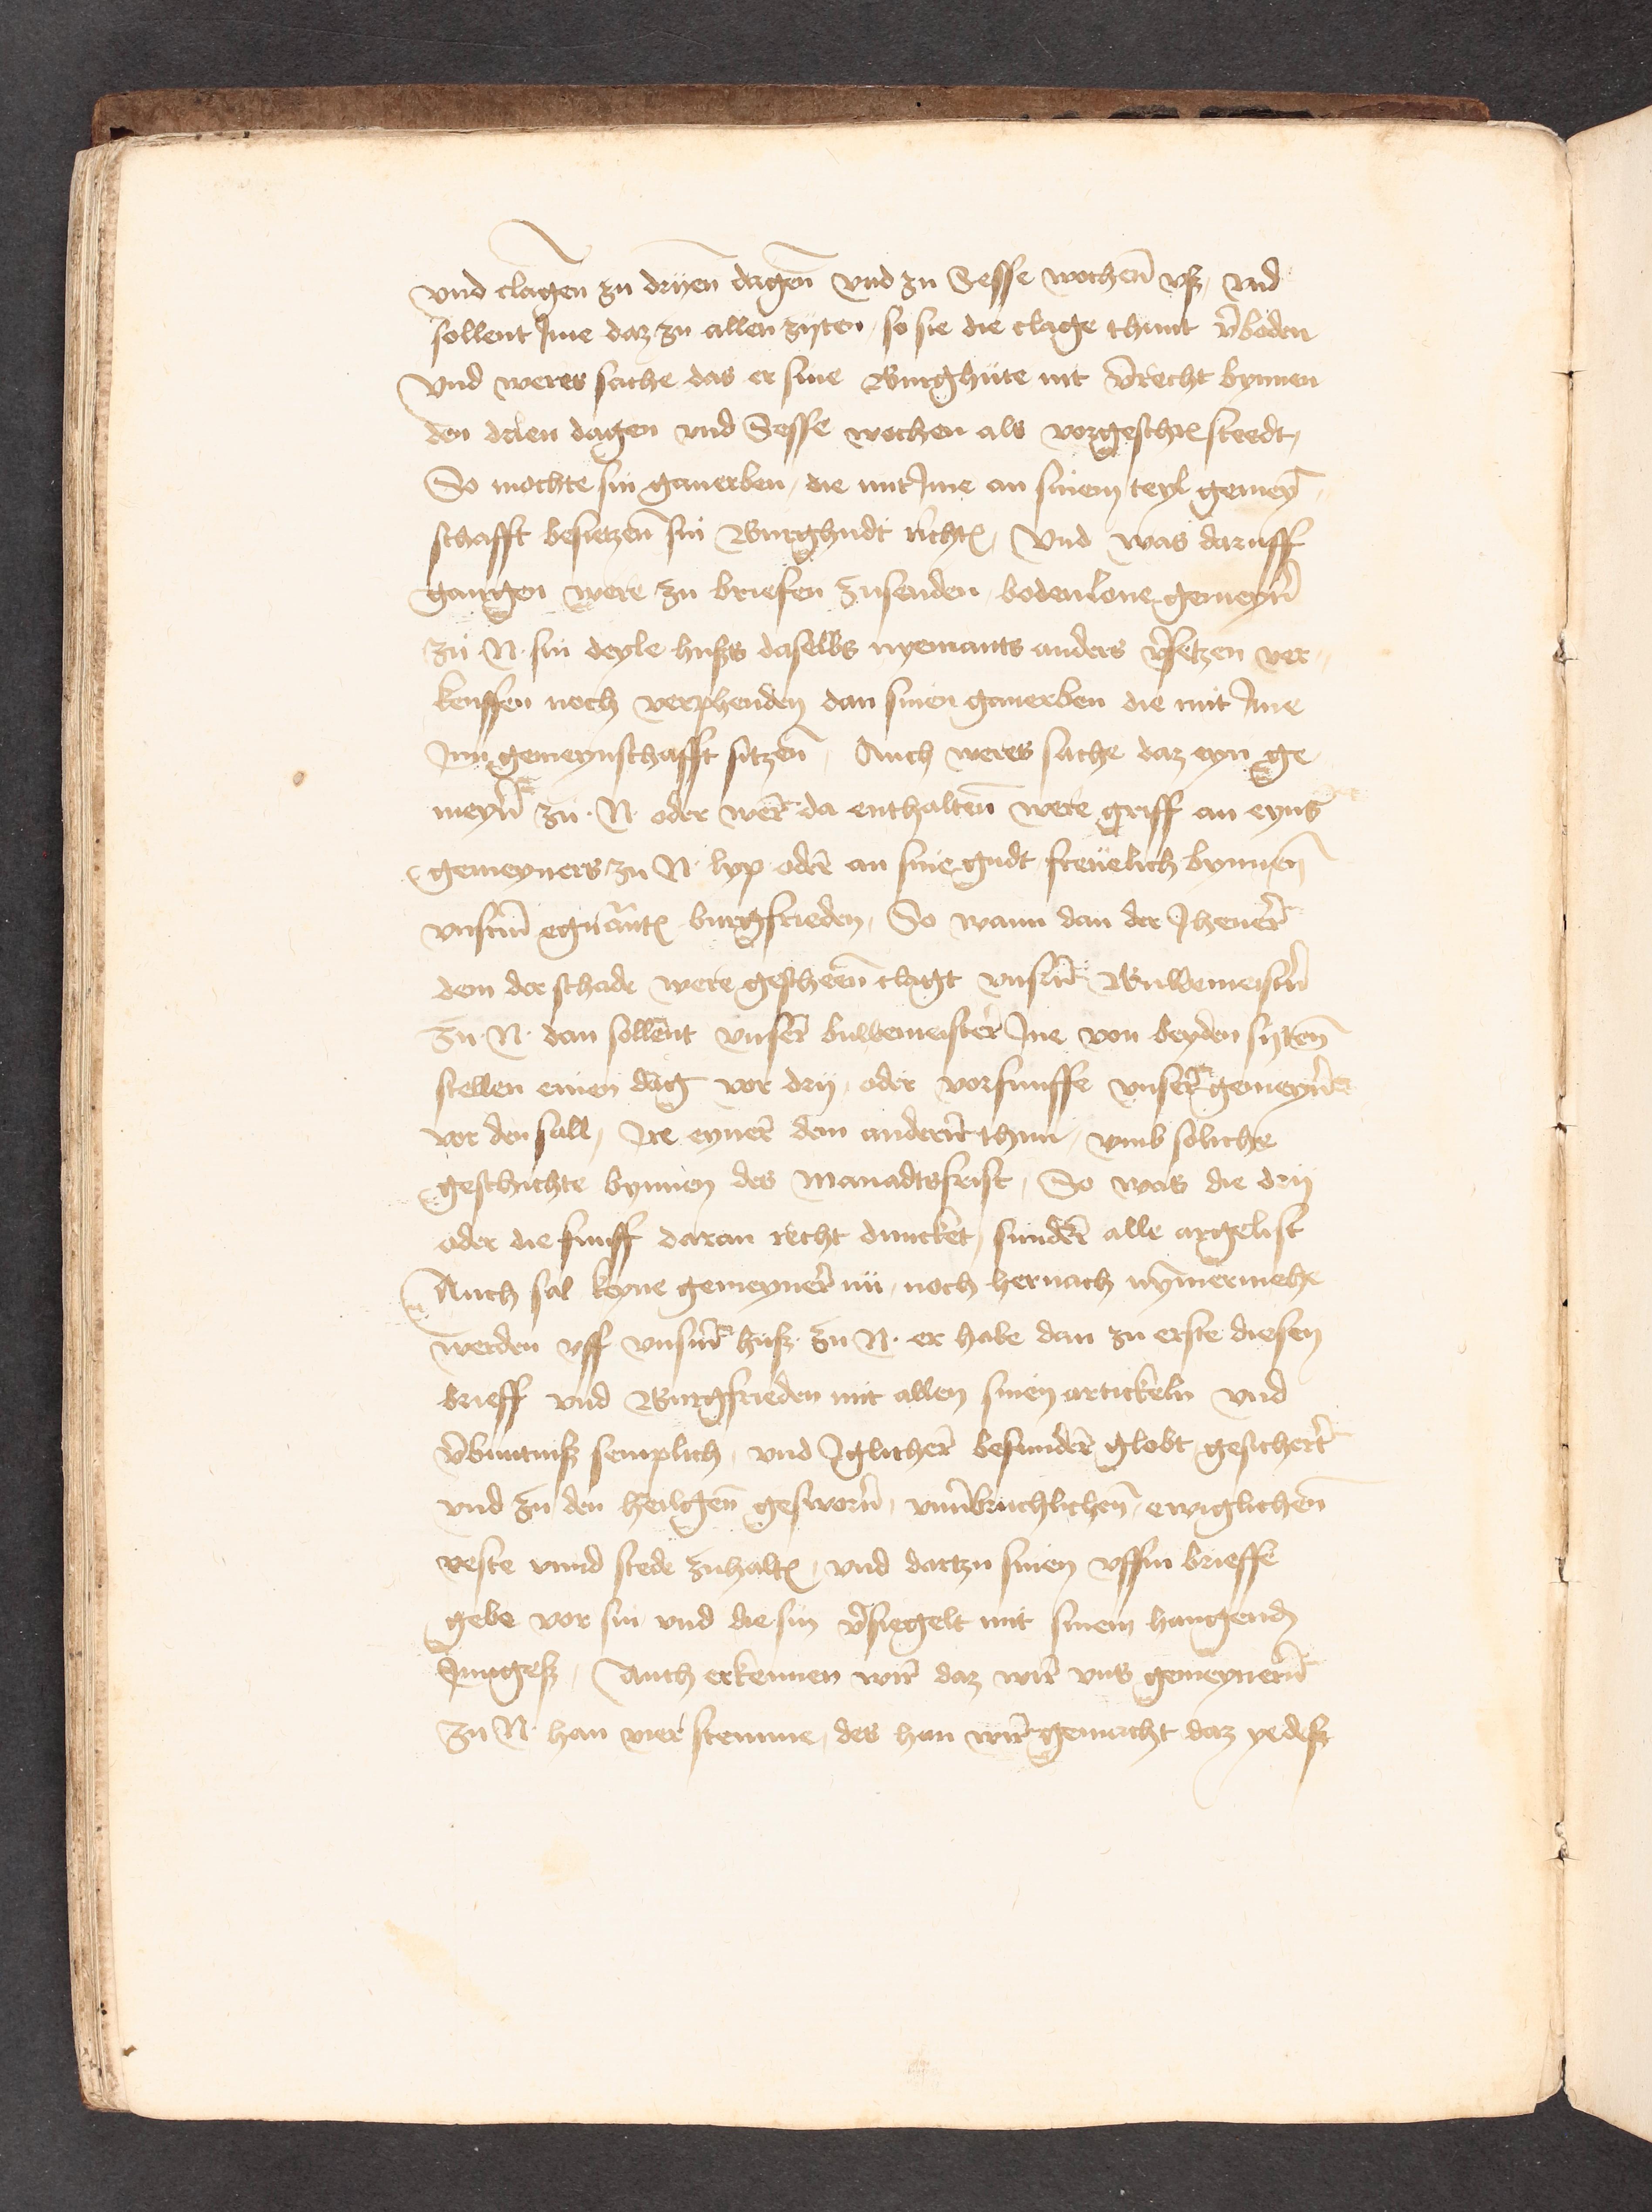 vnd clagen zu dryen dagen vnd zu Sesse wochen vß, vnd
sollent Ime daz zu allen zyten, so sie die clage thunt v̄boden
vnd weres sache das er sine Burghüte nit v̄recht bynnen
den drien dagen vnd Sesse wochen als vorgeschr steedt,
So mochte sin ganerben, die mit Ime an sinem teyl gemey̅
schafft besietzen sin Burghudt richt, Vnd was daruff
gangen were zu briefen zusenden, bodenlone gemeyn̄
zu N. sin deyle huß daselbs nyemants anders v̄setzen ver
keuffen noch verphenden dan sinen ganerben die mit Ime
Inn gemeynschafft sitzen, Auch weres sache daz eyn ge
meyn̄ zu N. oder wer da enthalten were griff an eyns
gemeyners zu N. lyp oder an sine gudt freuelich bynnen
vnserm egnant burgfrieden, So wann dan der Jhener
dem der schade were gescheen clagt vnsern Buwemeistern
zu N. dan sollent vnser buwemeister Ine von beyden syten
stellen einen dag vor dry, oder vor funffe vnser gemeyner
vor den sall, Ire eyner dem andern thun, vmb soliche
geschichte bynnen des manadtsfrist, So was die dry
oder die funff daran recht duncket, sunder alle argelist
Auch sal keyne gemeyner nü, noch hernach nymmermehe
werden vff vnserm huß zu N. er habe dan zu erste diesen
brieff vnd Burgfrieden mit allen sinen artickeln vnd
v̄buntniß semplich, vnd Iglicher besunder globt gesichert
vnd zu den heilgen gesworn, vnu̅bruchlichen, ewiglichen
veste vnnd stede zuhalt, vnd dartzu sinen vffin brieffe
gebe vor sin vnd die sin v̄siegelt mit sinem hangenden
Inngeß, Auch erkennen wir daz wir vns gemeynern
zu N. han vier stemme, des han wir gemacht daz yedeß